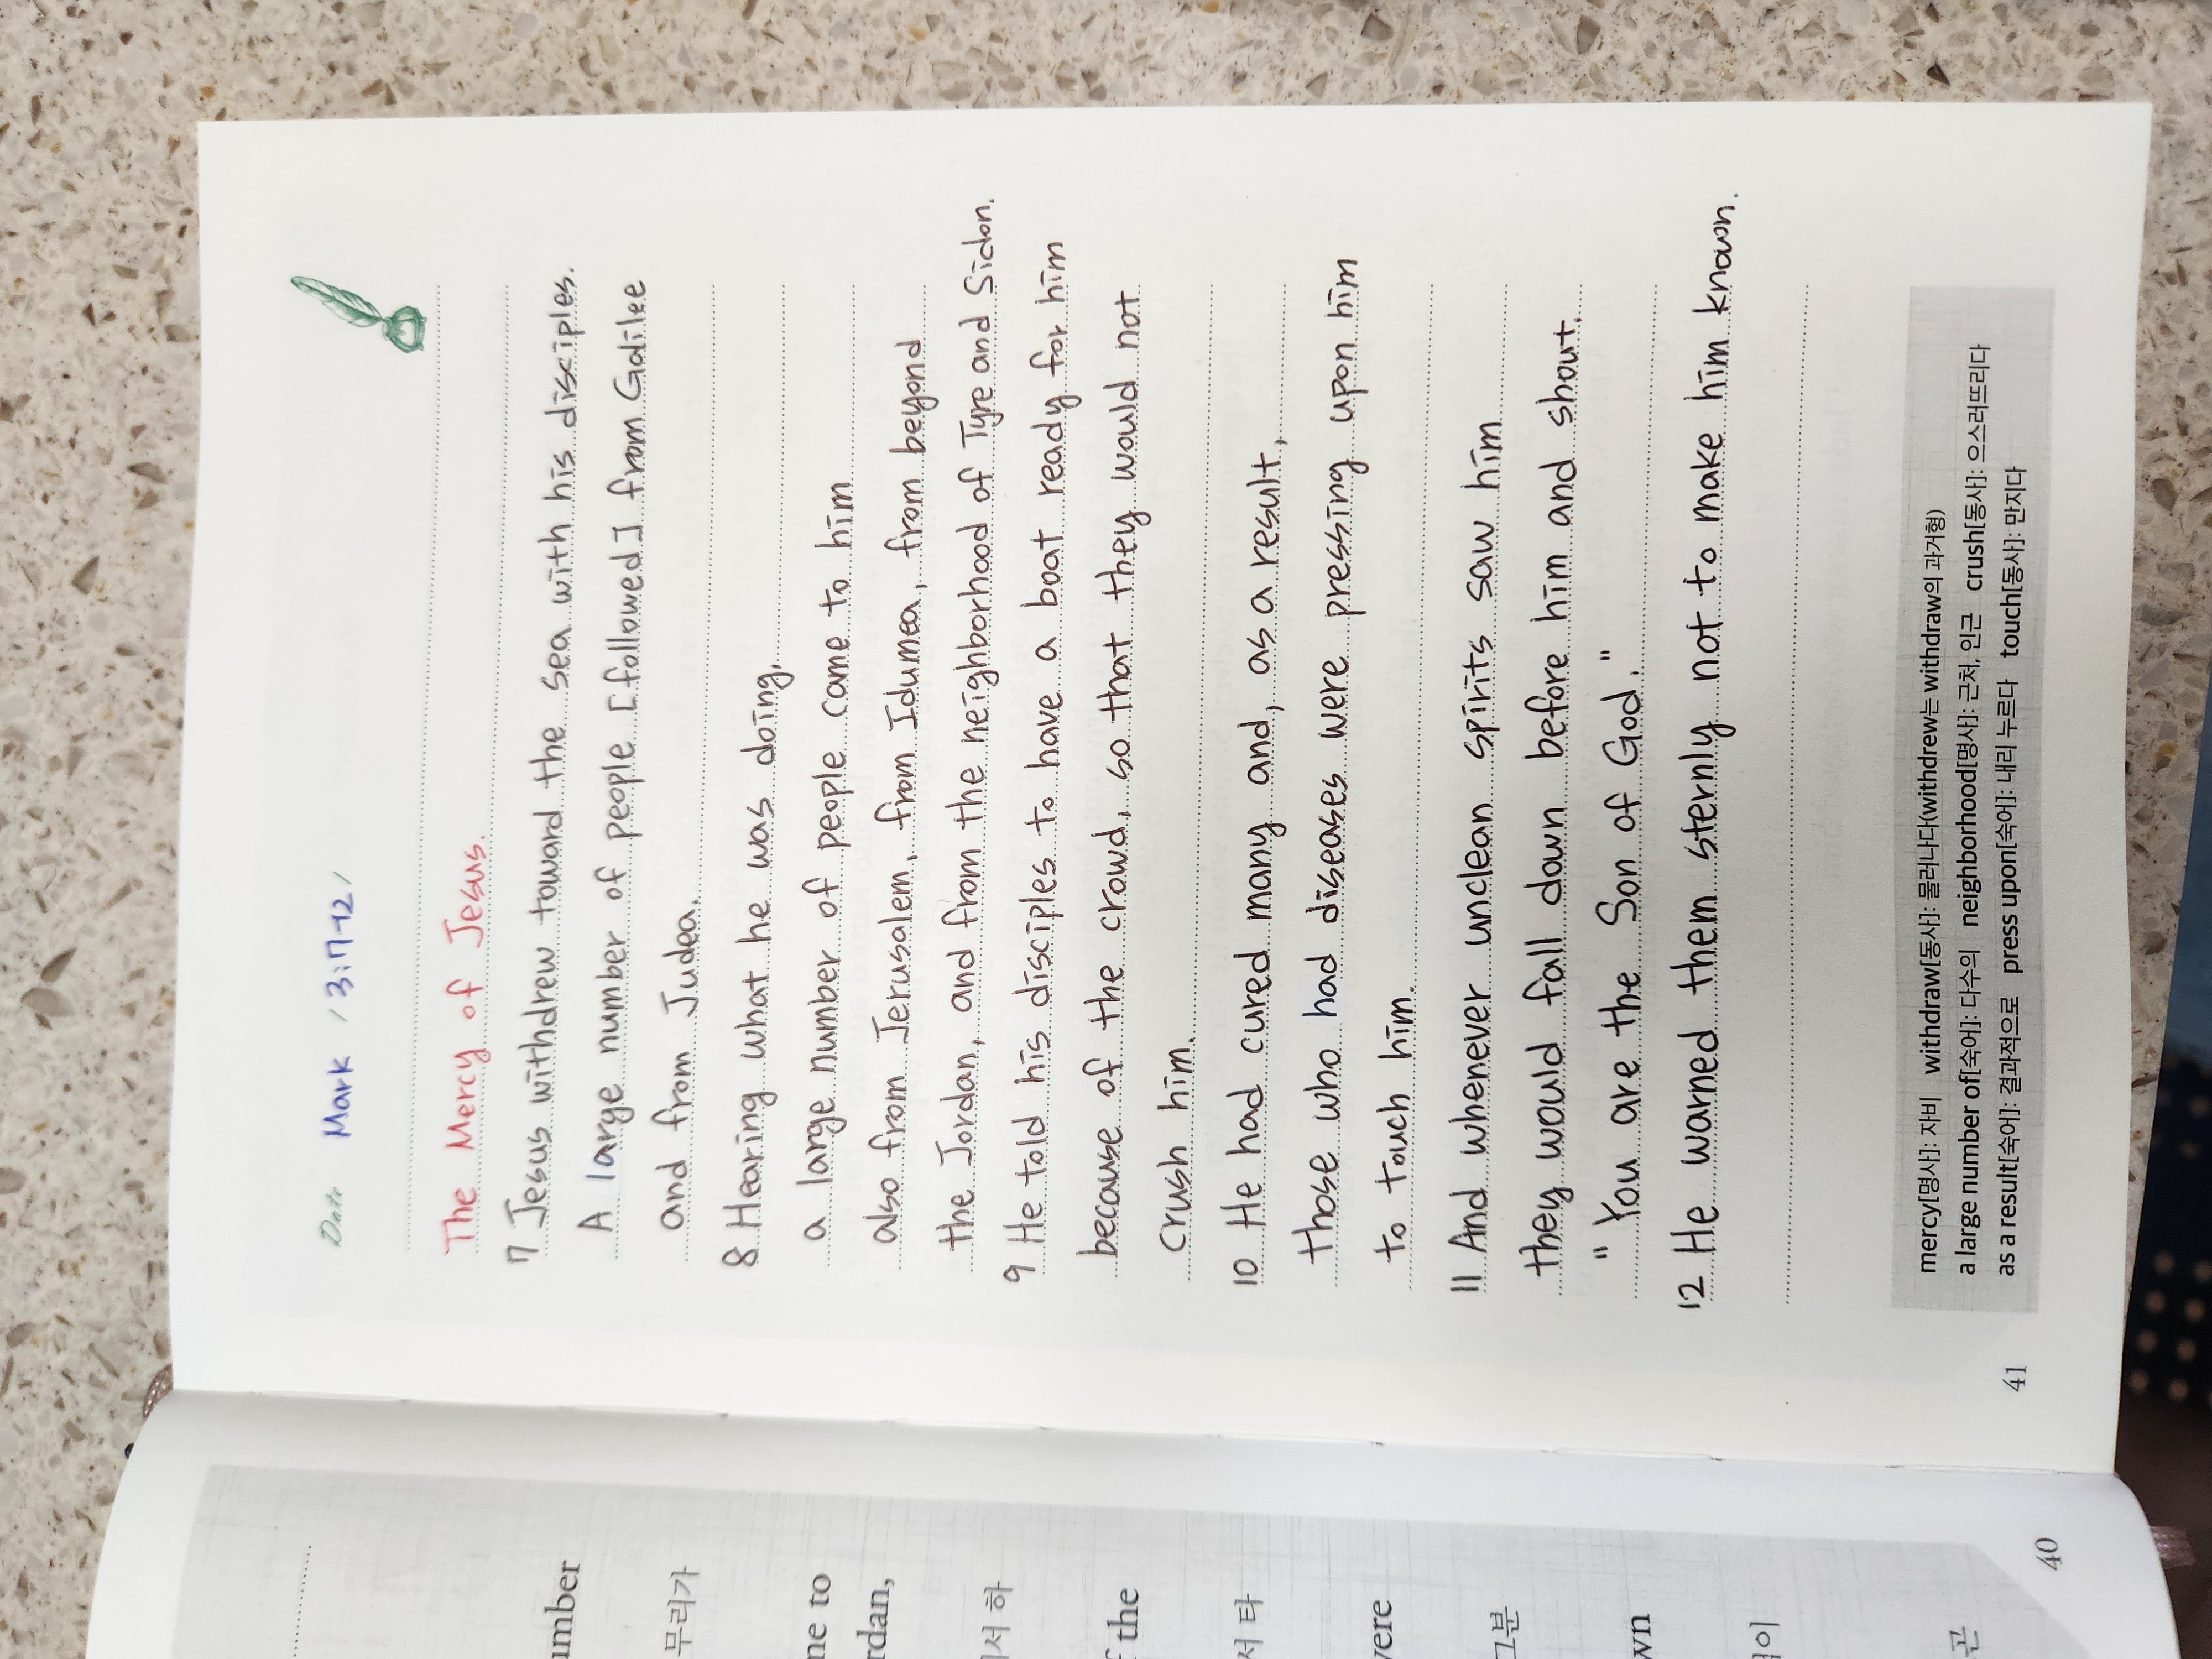 Date Mark / 3:7-12 /
The Mercy of Jesus.
7 Jesus withdrew toward the sea with his disciples.
A large number of people [followed] from Galilee
and from Judea.
8 Hearing what he was doing,
a large number of people came to him
also from Jerusalem, from Idumea, from beyond
the Jordan, and from the neighborhood of Tyre and Sidon.
9 He told his disciples to have a boat ready for him
because of the crowd, so that they would not
crush him.
10 He had cured many and, as a result,
those who had diseases were pressing upon him
to touch him.
11 And whenever unclean spirits saw him
they would fall down before him and shout.
"You are the Son of God."
12 He warned them sternly not to make him known.
mercy[명사]: 자비 withdraw[동사]: 물러나다(withdrew는 withdraw의 과거형)
a large number of[숙어]: 다수의 neighborhood[명사]: 근처, 인근 crush[동사]: 으스러뜨리다
as a result[숙어]: 결과적으로 press upon[숙어]: 내리 누르다 touch[동사]: 만지다
41
umber
무리가
ne to
rdan,
서 하
f the
서 타
vere
그분
wn
이
곤
40